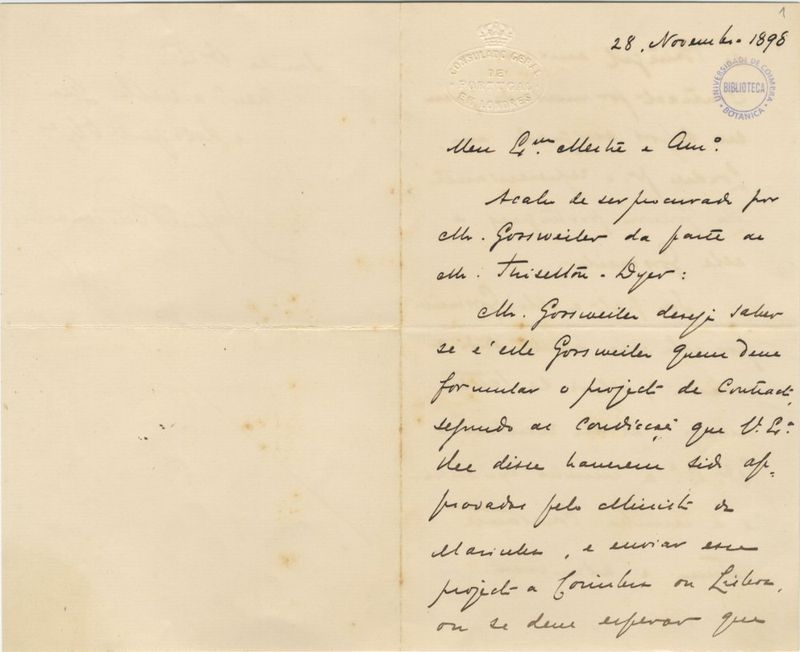 1
28, Novembro 1898
CONSULADO GERAL
DE
PORTUGAL
EM LONDRES
UNIVERSIDADE DE COIMBRA
BIBLIOTECA
BOTANICA
Meu Exmo. Mestre e Amo.
Acabo de ser procurado por
Mr. Gossweiler da parte de
Mr. Thiselton-Dyer:
Mr. Gossweiler deseja saber
se é elle Gossweiler quem deve
formular o projecto de Contracto,
segundo as Condicções que V. Exa.
lhe disse haverem sido ap-
provadas pelo Ministro da
Marinha, e enviar esse
projecto a Coimbra ou Lisboa,
ou se deve esperar que